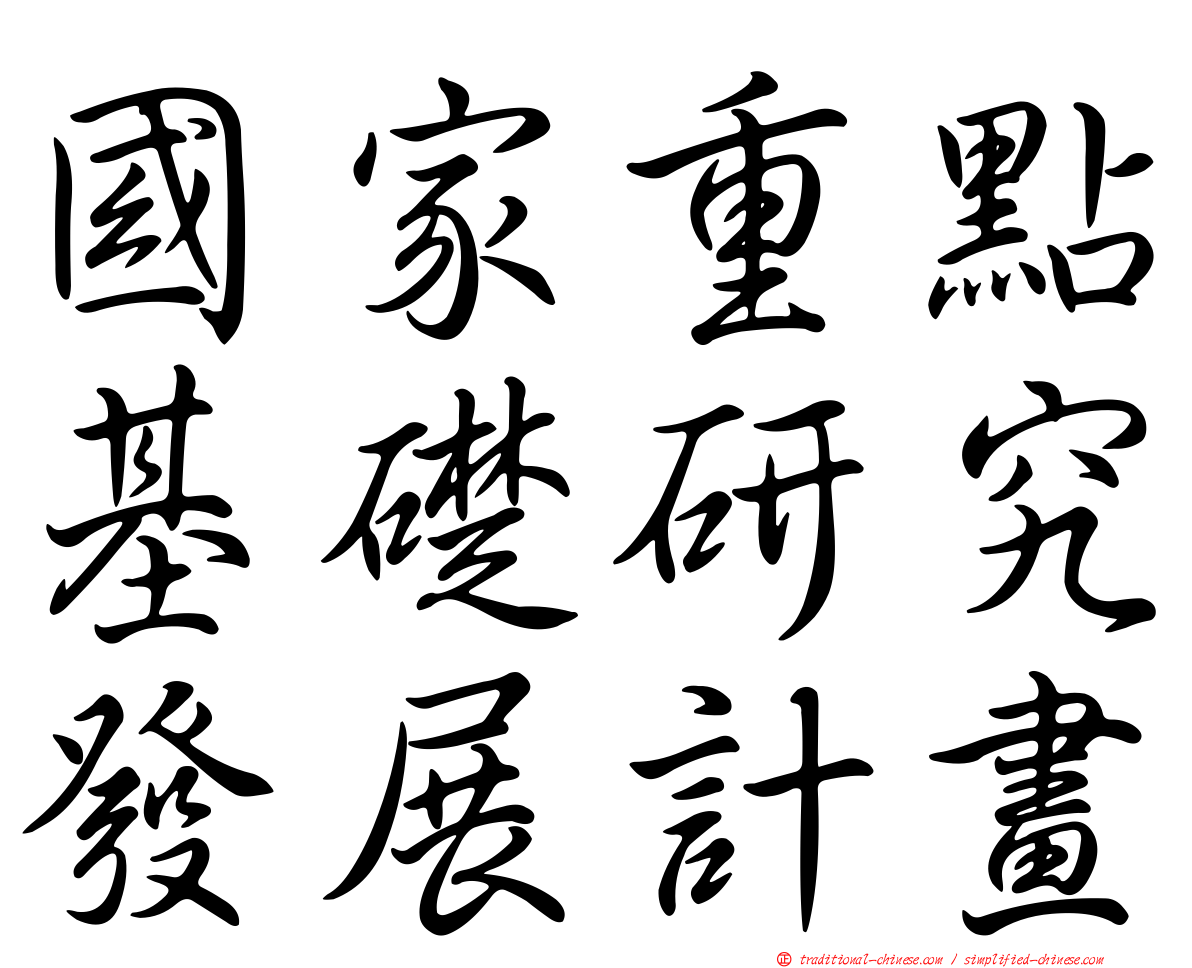 國家重點
基礎研究
發展計畫
㊣ traditional-chinese.com / simplified-chinese.com